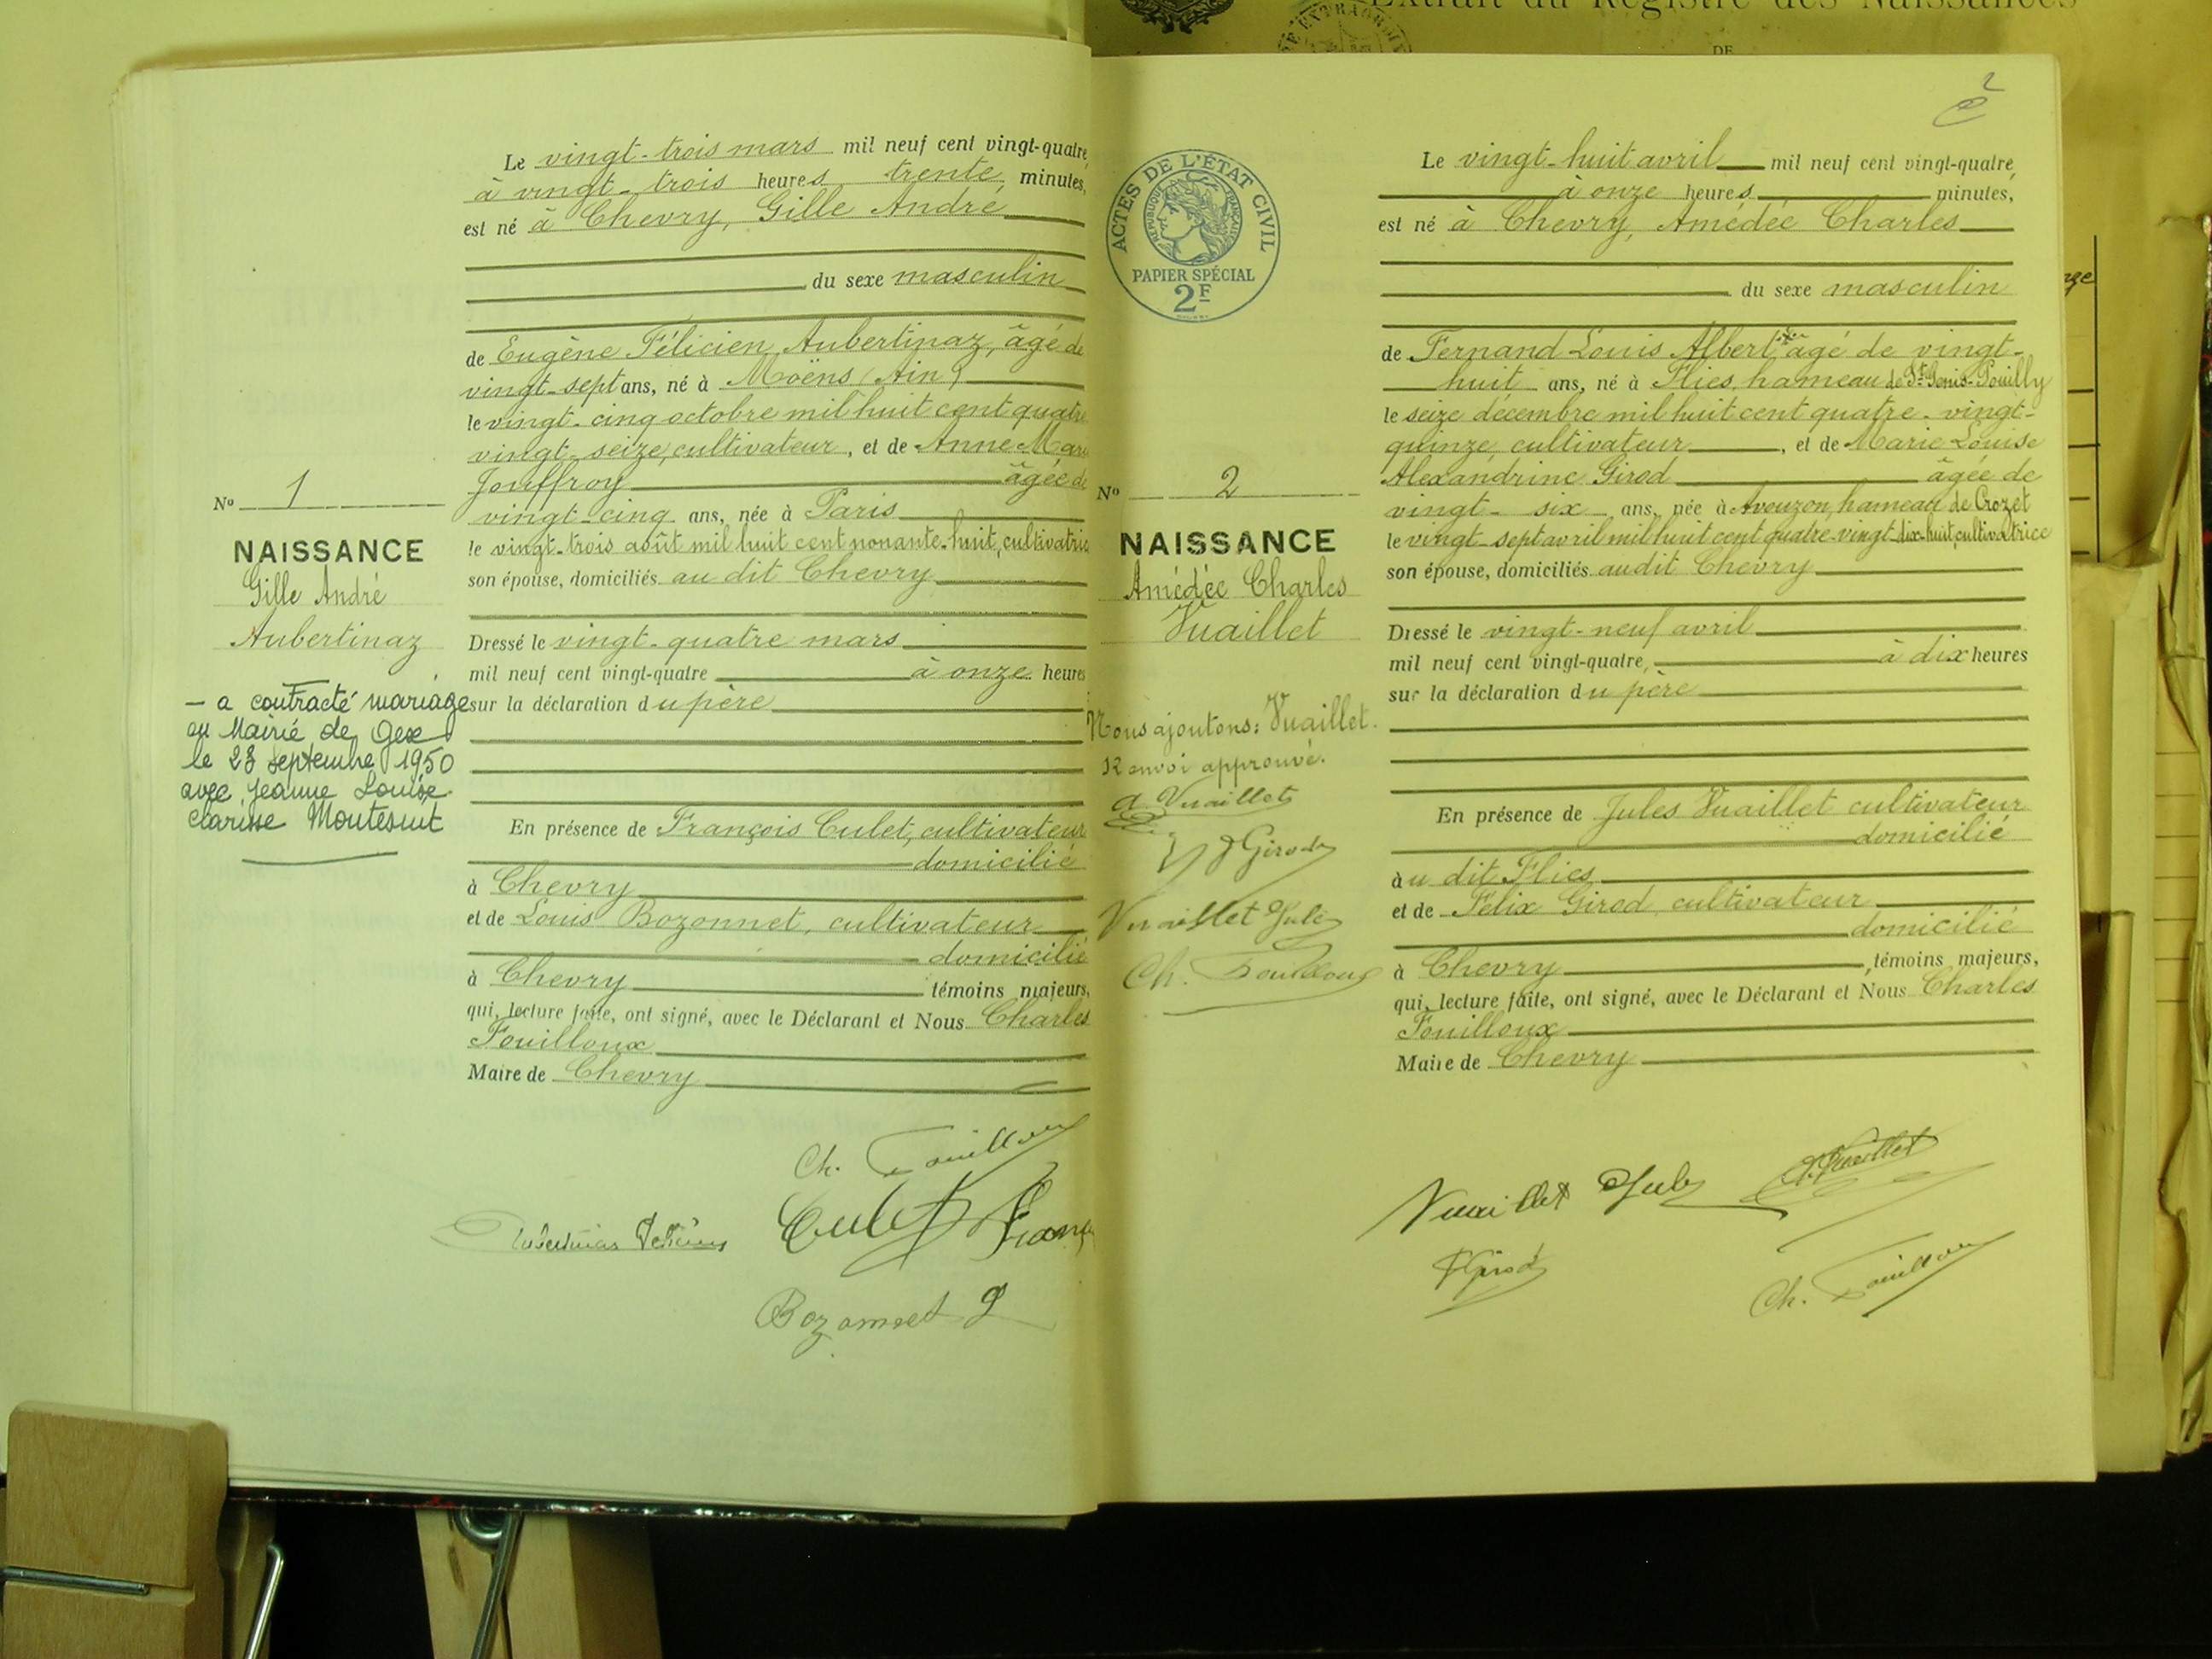 Extrait du Registre des Naissances
DE
Le vingt-trois mars mil neuf cent vingt-quatre,
à vingt-trois heures trente minutes,
est né à Chevry, Gille André
du sexe masculin
de Eugène Félicien Aubertinaz, âgé de
vingt-sept ans, né à Moëns (Ain)
le vingt-cinq octobre mil huit cent quatre
vingt-seize, cultivateur, et de Anne Marie
Jouffroy âgée de
vingt-cinq ans, née à Paris
le vingt-trois août mil huit cent nonante-huit, cultivatrice
son épouse, domiciliés au dit Chevry
Dressé le vingt-quatre mars
mil neuf cent vingt-quatre à onze heures
sur la déclaration du père
En présence de François Culet, cultivateur
domicilié
à Chevry
et de Louis Bozonnet, cultivateur
domicilié
à Chevry témoins majeurs,
qui, lecture faite, ont signé, avec le Déclarant et Nous Charles
Fouilloux
Maire de Chevry
No 1
NAISSANCE
Gille André
Aubertinaz
- a contracté mariage
en Mairie de Gex
le 23 septembre 1950
avec Jeanne Louise
Clarisse
Ch. Fouilloux
Culet
Bozonnet L
2
ACTES DE L'ÉTAT CIVIL
RÉPUBLIQUE FRANÇAISE
PAPIER SPÉCIAL
2F
No 2
NAISSANCE
Amédée Charles
Vuaillet
Nous ajoutons: Vuaillet.
Renvoi approuvé.
A Vuaillet
F Girod
Vuaillet Jules
Ch. Fouilloux
Le vingt-huit avril mil neuf cent vingt-quatre,
à onze heures minutes,
est né à Chevry, Amédée Charles
du sexe masculin
de Fernand Louis Albert * âgé de vingt-
huit ans, né à Flies, hameau de St Genis-Pouilly
le seize décembre mil huit cent quatre-vingt-
quinze, cultivateur, et de Marie Louise
Alexandrine Girod âgée de
vingt-six ans, née à Avouzon, hameau de Crozet
le vingt-sept avril mil huit cent quatre-vingt-dix-huit, cultivatrice
son épouse, domiciliés audit Chevry
Dressé le vingt-neuf avril
mil neuf cent vingt-quatre, à dix heures
sur la déclaration du père
En présence de Jules Vuaillet cultivateur
domicilié
àu dit Flies
et de Félix Girod, cultivateur
domicilié
à Chevry, témoins majeurs,
qui, lecture faite, ont signé, avec le Déclarant et Nous Charles
Fouilloux
Maire de Chevry
Vuaillet Jules
A. Vuaillet
F Girod
Ch. Fouilloux